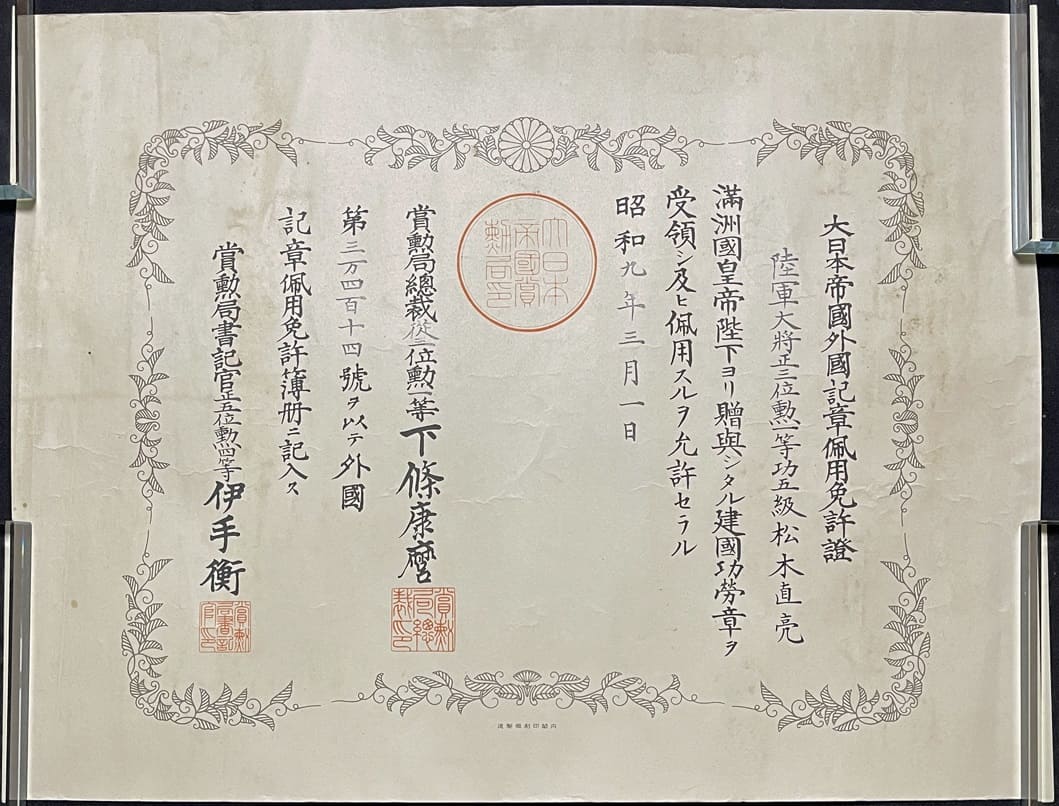 大日本帝國外國記章佩用免許證
陸軍大將正三位勲一等功五級松木直亮
滿洲國皇帝陛下ヨリ贈與シタル建國功勞章ヲ
受領シ及ヒ佩用スルヲ允許セラル
昭和九年三月一日
大日本
帝國賞
勲局印
賞勲局總裁從二位勲一等下條康麿
賞勲
局總
裁印
第三万四百十四號ヲ以テ外國
記章佩用免許簿册ニ記入ス
賞勲局書記官正五位勲四等伊手衡
賞勲
局書記
官印
内閣印刷局製造